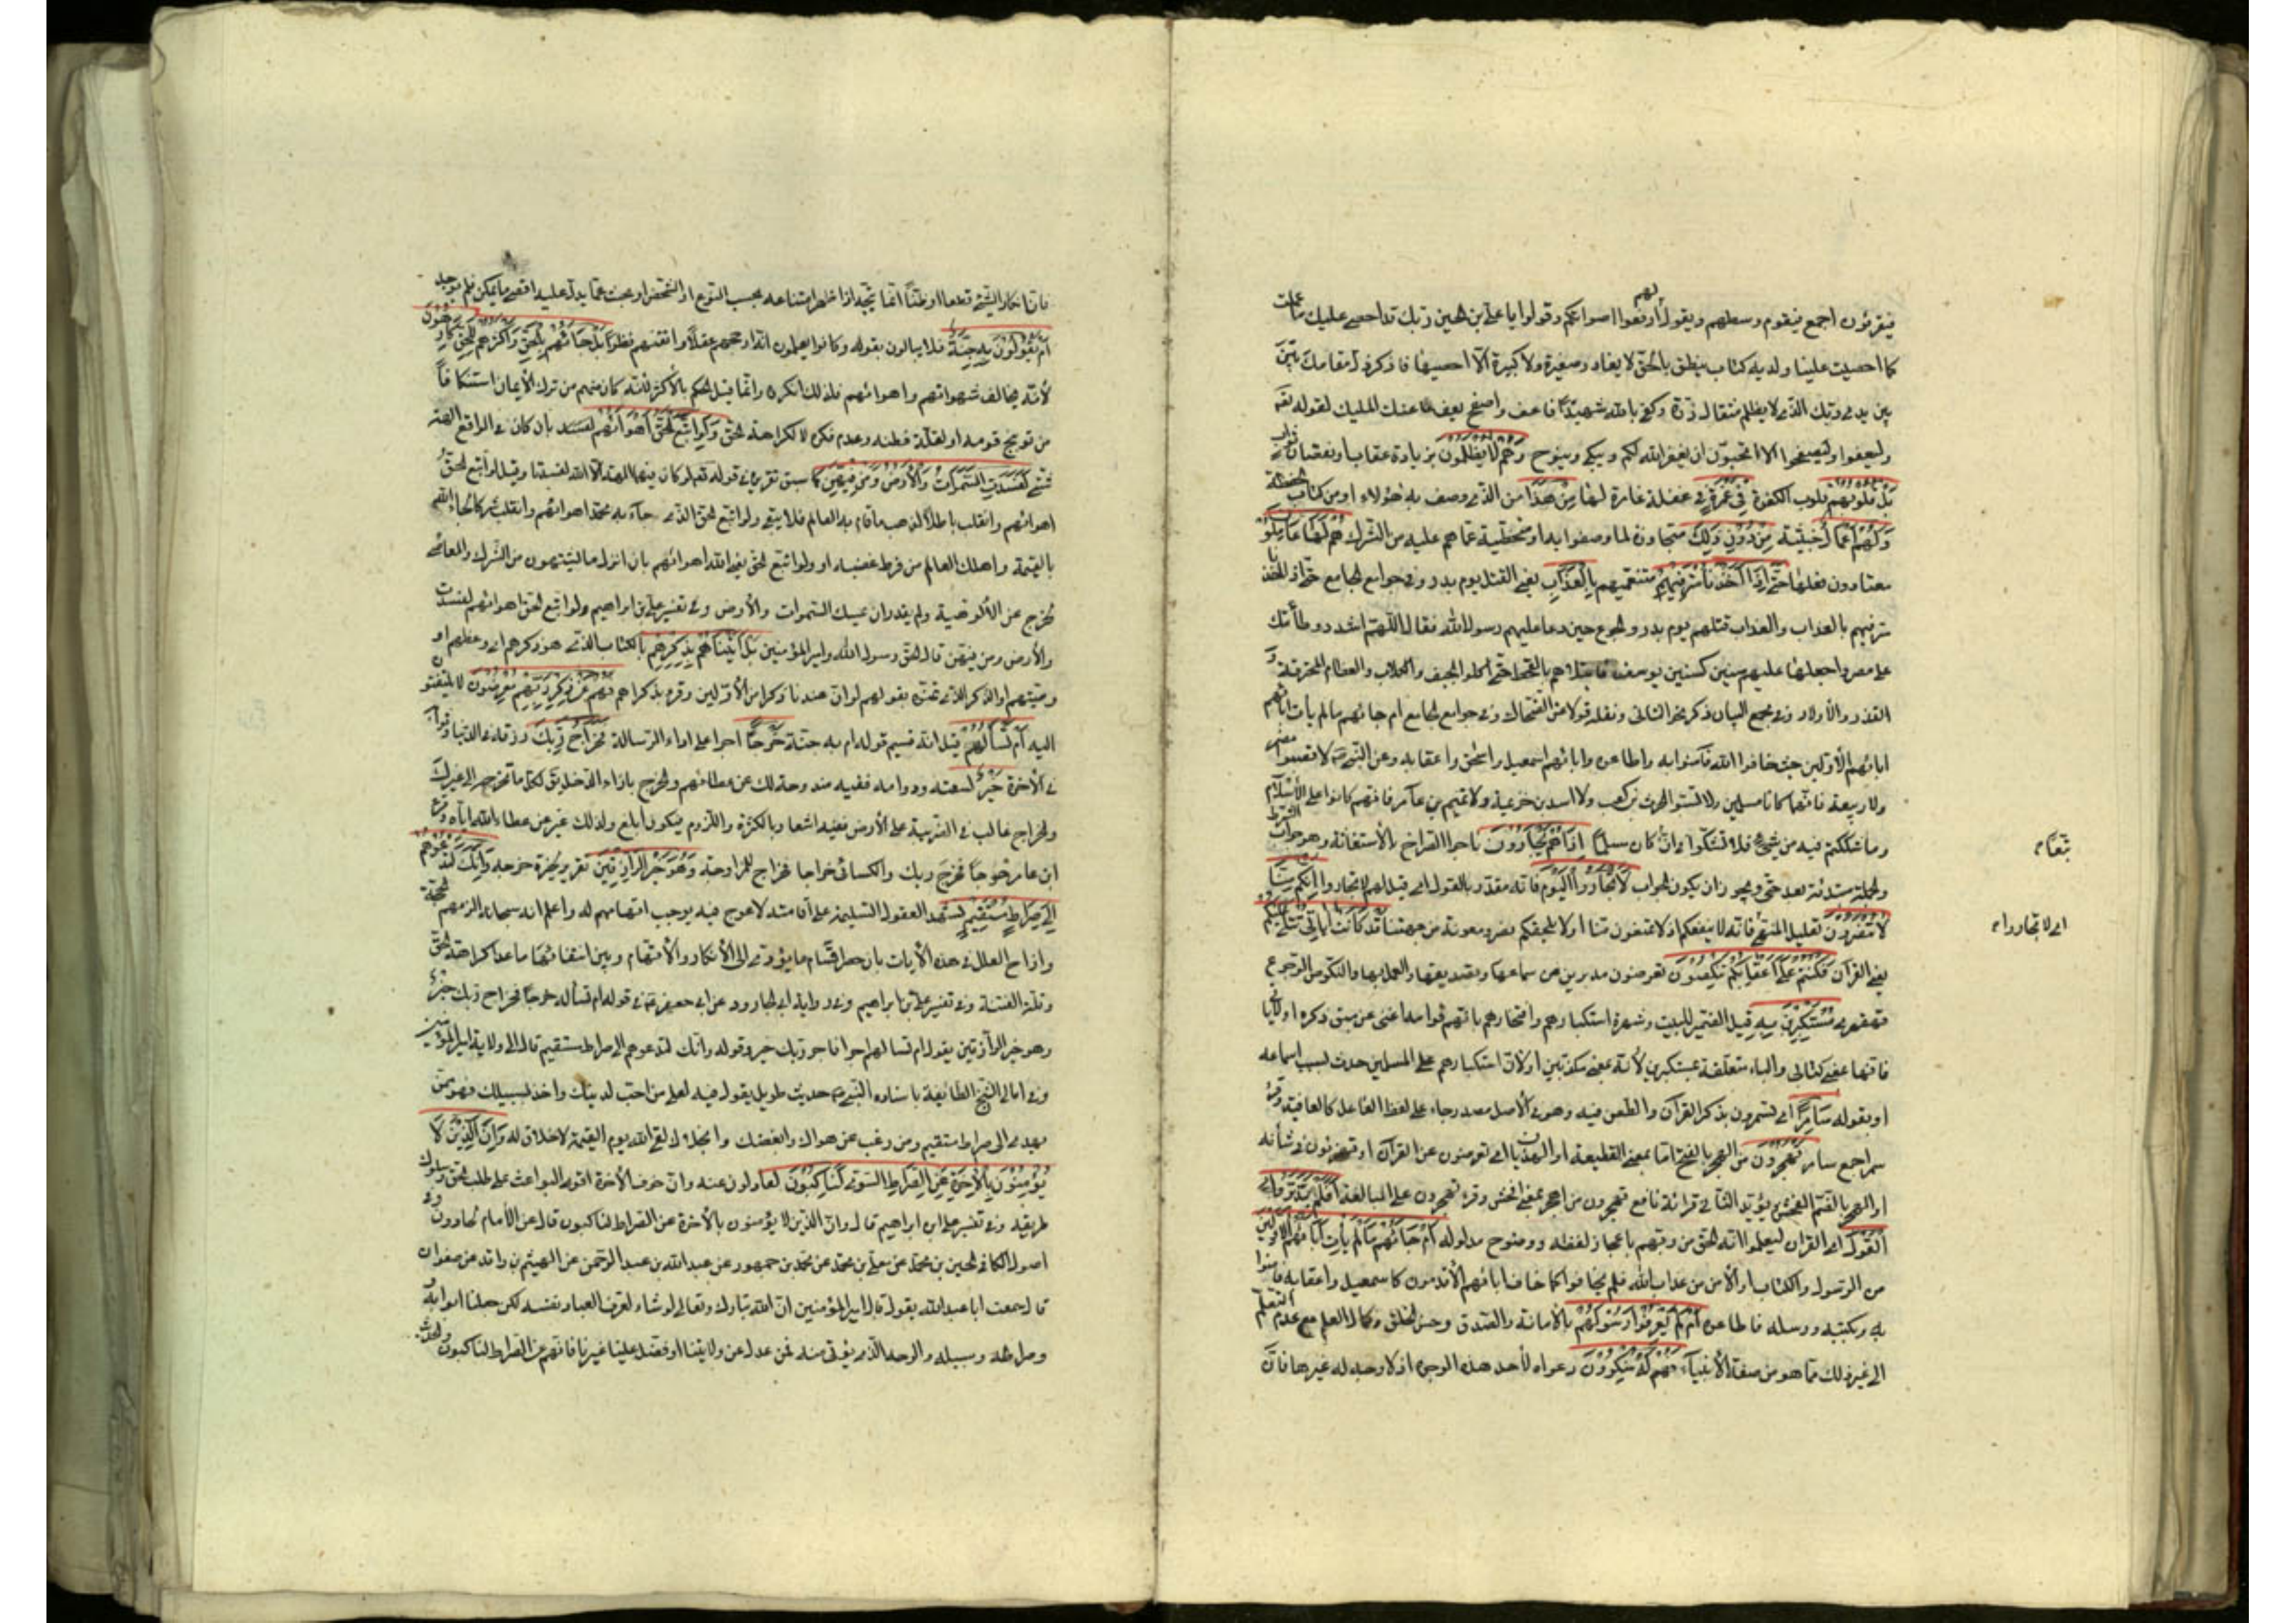 فيقرئون اجمع فيقوم وسطهم ويقول لهم ارفعوا اصواتكم وقولوا يا علي بن الحسين ربك قد احصى عليك ما عملت
كما احصيت علينا ولديه كتاب ينطق بالحق لا يغادر صغيرة ولا كبيرة الا احصيها فاذكر ذل مقامك بين
يدي ربك الذي لا يظلم مثقال ذرة وكفى بالله شهيدا فاعف واصفح يعف عنك المليك لقوله تعالى
وليعفوا وليصفحوا الا تحبون ان يغفر الله لكم ويبكي وينوح وَهُمْ لَا يُظْلَمُونَ بزيادة عقاب او نقصان ثواب
بَلْ قُلُوبُهُمْ قلوب الكفرة فِي غَمْرَةٍ في غفلة غامرة لها مِنْ هَذَا من الذي وصف به هؤلاء او من كتاب الحفظة
وَلَهُمْ أَعْمَالٌ خبيثة مِنْ دُونِ ذَلِكَ متجاوزة لما وصفوا به او متخطية عما هم عليه من الشرك هُمْ لَهَا عَامِلُونَ
معتادون فعلها حَتَّى إِذَا أَخَذْنَا مُتْرَفِيهِمْ متنعميهم بِالْعَذَابِ يعني القتل يوم بدر وفي جوامع الجامع حتى اذا اخذنا
مترفيهم بالعذاب والعذاب قتلهم يوم بدر والجوع حين دعا عليهم رسول الله فقال اللهم اشدد وطأتك
على مضر واجعلها عليهم سنين كسنين يوسف فابتلاهم بالقحط حتى اكلوا الجيف والكلاب والعظام المحترقة و
القذر والاولاد وفي مجمع البيان ذكر نحو الثاني ونقله قولا عن الضحاك وفي جوامع الجامع ام جائهم ما لم يأت ابائهم
ابائهم الاولين حيث خافوا الله فآمنوا به واطاعوه وابائهم اسمعيل واسحق واعقابه وعن النبي ص لا تسبوا مضر
ولا ربيعة فانهما كانا مسلمين ولا تسبوا الحرث بن كعب ولا اسد بن خزيمة ولا تميم بن مر فانهم كانوا على الاسلام
وما شككتم فيه من شيء فلا تشكوا في ان تبعا كان مسلما إِذَا هُمْ يَجْأَرُونَ فاجؤا الصراخ بالاستغاثة وهو جواب الشرط
والجملة مبتدئة بعد حتى ويجوز ان يكون الجواب لَا تَجْأَرُوا الْيَوْمَ فانه مقدر بالقول اي قيل لهم لا تجاروا إِنَّكُمْ مِنَّا
لَا تُنْصَرُونَ تعليل للنهي فانه لا ينفعكم اذ لا تمنعون منا او لا يلحقكم نصر ومعونة من جهتنا قَدْ كَانَتْ آيَاتِي تُتْلَى عَلَيْكُمْ
يعني القرآن فَكُنْتُمْ عَلَى أَعْقَابِكُمْ تَنْكِصُونَ تعرضون مدبرين عن سماعها وتصديقها والعمل بها والنكوص الرجوع
قهقرى مُسْتَكْبِرِينَ بِهِ قيل الضمير للبيت وشهرة استكبارهم وافتخارهم بانهم قوامه اغنى عن سبق ذكره او لاياتي
فانها بمعنى كتابي والباء متعلقة بمستكبرين لانه بمعنى مكذبين او لان استكبارهم على المسلمين حدث بسبب استماعه
او بقوله سَامِرًا اي تسمرون بذكر القرآن والطعن فيه وهو في الاصل مصدر جاء على لفظ الفاعل كالعافية وقرئ
سمرا جمع سامر تَهْجُرُونَ من الهجر بالفتح اما بمعنى القطيعة او الهذيان اي تعرضون عن القرآن او تهذون في شأنه
او الهجر بالضم الفحش ويؤيد الثاني قرائة نافع تهجرون من اهجر بمعنى افحش وقرئ تهجرون على المبالغة أَفَلَمْ يَدَّبَّرُوا
الْقَوْلَ اي القرآن ليعلموا انه الحق من ربهم باعجاز لفظه ووضوح مدلوله أَمْ جَاءَهُمْ مَا لَمْ يَأْتِ آبَاءَهُمُ الْأَوَّلِينَ
من الرسول والكتاب او الامن من عذاب الله فلم يخافوا كما خاف ابائهم الاقدمون كاسمعيل واعقابه فامنوا
به وبكتبه ورسله فاطاعوه أَمْ لَمْ يَعْرِفُوا رَسُولَهُمْ بالامانة والصدق وحسن الخلق وكمال العلم مع عدم التعلم
الى غير ذلك مما هو من صفة الانبياء فَهُمْ لَهُ مُنْكِرُونَ دعواه لاحد هذه الوجوه اذ لا وجه له غيرها فان
تبعا م
اي لا تجاروا م
فان انكار الشيء قطعا او ظنا انما يتجه اذا ظهر امتناعه بحسب النوع او الشخص او بحث عما يدل عليه اقصى ما يمكن فلم يوجد
أَمْ يَقُولُونَ بِهِ جِنَّةٌ فلا يبالون بقوله وكانوا يعلمون انه ارجحهم عقلا واتقنهم نظرا بَلْ جَاءَهُمْ بِالْحَقِّ وَأَكْثَرُهُمْ لِلْحَقِّ كَارِهُونَ
لانه يخالف شهواتهم واهوائهم فلذلك انكروه وانما قيد الحكم بالاكثر لانه كان منهم من ترك الايمان استنكافا
من توبيخ قومه او لقلة فطنه وعدم فكره لا لكراهة للحق وَلَوِ اتَّبَعَ الْحَقُّ أَهْوَاءَهُمْ بان كان في الواقع الهة
شتى لَفَسَدَتِ السَّمَوَاتُ وَالْأَرْضُ وَمَنْ فِيهِنَّ كما سبق تقريره في قوله تعالى لو كان فيهما الهة الا الله لفسدتا وقيل لو اتبع الحق
اهوائهم وانقلب باطلا لذهب ما قام به العالم فلا يبقى ولو اتبع الحق الذي جاء به محمد اهوائهم وانقلب شركا لجاء الله
بالقيمة واهلك العالم من فرط غضبه او ولو اتبع الحق يعني الله اهوائهم بان انزل ما يشتهون من الشرك والمعاصي
لخرج عن الالوهية ولم يقدر ان يمسك السموات والارض وفي تفسير علي بن ابراهيم ولو اتبع الحق اهوائهم لفسدت
والارض ومن فيهن قال الحق رسول الله وامير المؤمنين بَلْ أَتَيْنَاهُمْ بِذِكْرِهِمْ بالكتاب الذي هو ذكرهم اي وعظهم او
وصيتهم او الذكر الذي تمنوه بقولهم لو ان عندنا ذكرا من الاولين وقرئ بذكراهم فَهُمْ عَنْ ذِكْرِهِمْ مُعْرِضُونَ لا يلتفتون
اليه أَمْ تَسْأَلُهُمْ قيل انه قسيم قوله ام به جنة خَرْجًا اجرا على اداء الرسالة فَخَرَاجُ رَبِّكَ رزقه في الدنيا او ثوابه
في الاخرة خَيْرٌ لسعته ودوامه ففيه مندوحة لك عن عطائهم والخرج بازاء الدخل يقال لكل ما تخرجه الى غيرك
والخراج غالب في الضريبة على الارض ففيه اشعار بالكثرة واللزوم فيكون ابلغ ولذلك عبر عن عطاء الله اياه وقرئ
ابن عامر خرجا فخرج ربك والكسائي خراجا فخراج للمزاوجة وَهُوَ خَيْرُ الرَّازِقِينَ تقرير لخيرية خرجه وَإِنَّكَ لَتَدْعُوهُمْ
إِلَى صِرَاطٍ مُسْتَقِيمٍ تشهد العقول السليمة على استقامته لا عوج فيه يوجب اتهامهم له واعلم انه سبحانه الزمهم الحجة
وازاح العلل في هذه الايات بان حصر اقسام ما يؤدي الى الانكار والاتهام وبين انتفائها ما عدا كراهة الحق
وقلة الفطنة وفي تفسير علي بن ابراهيم وفي رواية ابي الجارود عن ابي جعفر ع في قوله ام تسألهم خرجا فخراج ربك خير
وهو خير الرازقين يقول ام تسألهم اجرا فاجر ربك خير وقوله وانك لتدعوهم الى صراط مستقيم قال الى ولاية امير المؤمنين
وفي امالي الشيخ الطائفة باسناده الى النبي ص حديث طويل يقول فيه لعلي من احب لدينك واخذ لسبيلك فهو ممن
يهدى الى صراط مستقيم ومن رغب عن هواك وابغضك وانجلاك لقى الله يوم القيمة لا خلاق له وَإِنَّ الَّذِينَ لَا
يُؤْمِنُونَ بِالْآخِرَةِ عَنِ الصِّرَاطِ السوي لَنَاكِبُونَ لعادلون عنه وان خوف الاخرة اقوى البواعث على طلب الحق وسلوك
طريقه وفي تفسير علي ابن ابراهيم قال وان الذين لا يؤمنون بالاخرة عن الصراط لناكبون قال عن الامام لحادون وفي
اصول الكافي الحسين بن محمد عن معلى بن محمد عن محمد بن جمهور عن عبد الله بن عبد الرحمن عن الهيثم بن واقد عن مقرن
قال سمعت ابا عبد الله يقول قال امير المؤمنين ان الله تبارك وتعالى لو شاء لعرف العباد نفسه لكن جعلنا ابوابه و
وصراطه وسبيله والوجه الذي يؤتى منه فمن عدل عن ولايتنا او فضل علينا غيرنا فانهم عن الصراط لناكبون والحديث